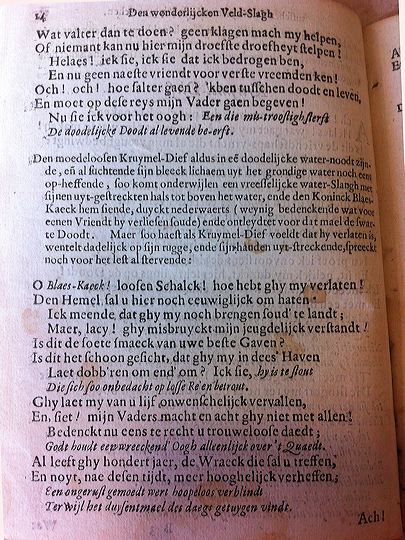 14 Den wonderlijcken Veld-Slagh
Wat valter dan te doen? geen klagen mach my helpen,
Of niemant kan nu hier mijn droefste droefheyt stelpen!
Helaes! ick sie, ick sie dat ick bedrogen ben,
En nu geen naeste vriendt voor verste vreemden ken!
Och! och! hoe salter gaen? 'kben tusschen doodt en leven,
En moet op dese reys mijn Vader gaen begeven!
Nu sie ick voor het oogh: Een die
De doodelijcke Doodt al levende be-erft.
Den moedeloosen Kruymel-Dief aldus in eē doodelijcke water-noodt zijn-
de, eñ al suchtende sijn bleeck lichaem uyt het grondige water noch eens
op-heffende, soo komt onderwijlen een vreesselijcke water-Slangh met
sijnen uyt-gestreckten hals tot boven het water, ende den Koninck Blaes-
Kaeck hem siende, duyckt nederwaerts (weynig bedenckende wat voor
eenen Vriendt hy verliesen soude) ende ontleydtet voor dat mael de swar-
te Doodt. Maer soo haest als Kruymel-Dief voeldt dat hy verlaten is,
wentelt dadelijck op sijn rugge, ende sijn handen uyt-streckende, spreeckt
noch voor het lest al stervende:
O Blaes-Kaeck! loosen Schalck! hoe hebt ghy my verlaten!
Den Hemel sal u hier noch eeuwiglijck om haten.
Ick meende dat ghy my noch brengen soud' te landt;
Maer, lacy! ghy misbruyckt mijn jeugdelijck verstandt!
Is dit de soete smaeck van uwe beste Gaven?
Is dit het schoon gesicht, dat ghy my in dees' Haven
Laet dobb'ren om end' om? Ick sie, hy is te stout
Die sich soo onbedacht op losse Re'en betrout.
Ghy laet my van u lijf onwenschelijck vervallen,
En, siet! mijn Vaders macht en acht ghy niet met allen!
Bedenckt nu eens te recht u trouweloose daedt;
Godt houdt een wreeckend' Oogh alleenlijck over 't Quaedt.
Al leeft ghy hondert jaer, de Wraeck die sal u treffen,
En noyt, nae desen tijdt, meer hooghelijck verheffen;
Een ongerust gemoedt wert hoopeloos verblindt
Terwijl het duysentmael des daegs getuygen vindt.
Ach!